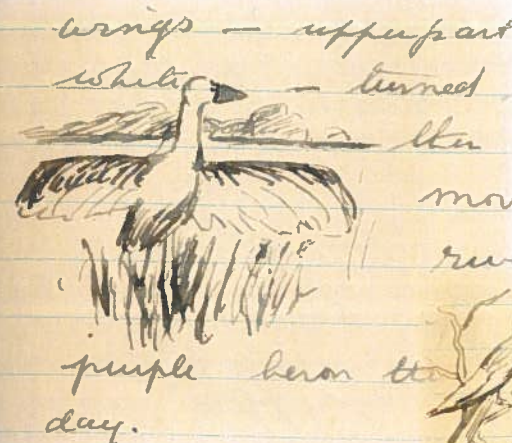 wings — upper part
white — turned
the
mo
purple heron the
day.